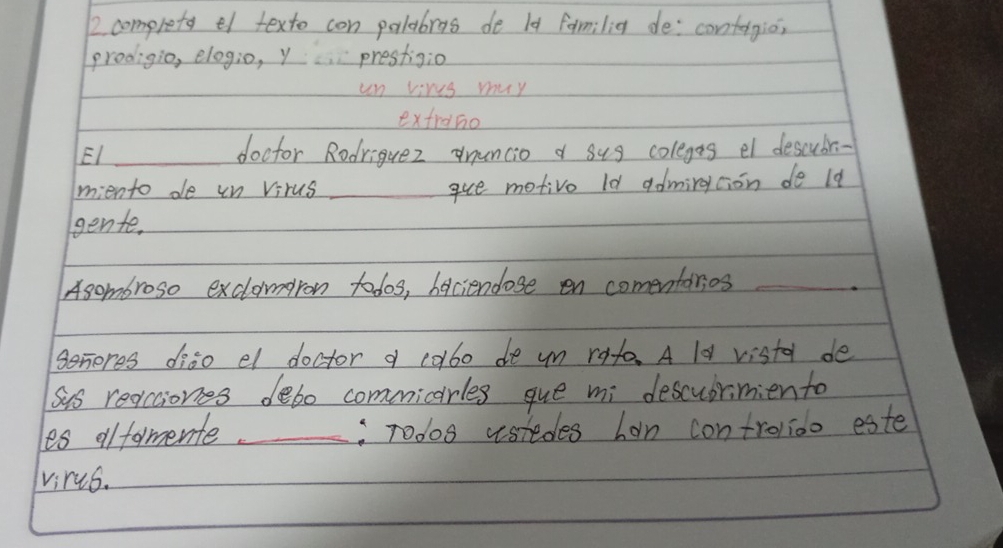 2. completa el texto con palabras de la familia de: contagio,
prodigio, elogio, y prestigio
un virus muy
extraño
El ________ doctor Rodriguez anuncio a sus colegas el descubri-
miento de un virus ________ que motivo la admiración de la
gente.
Asombroso exclamaron todos, haciendose en comentarios ________.
señores dijo el doctor a cabo de un rato. A la vista de
sus reacciones debo comunicarles que mi descubrimiento
es altamente ________: Todos ustedes han contraido este
virus.